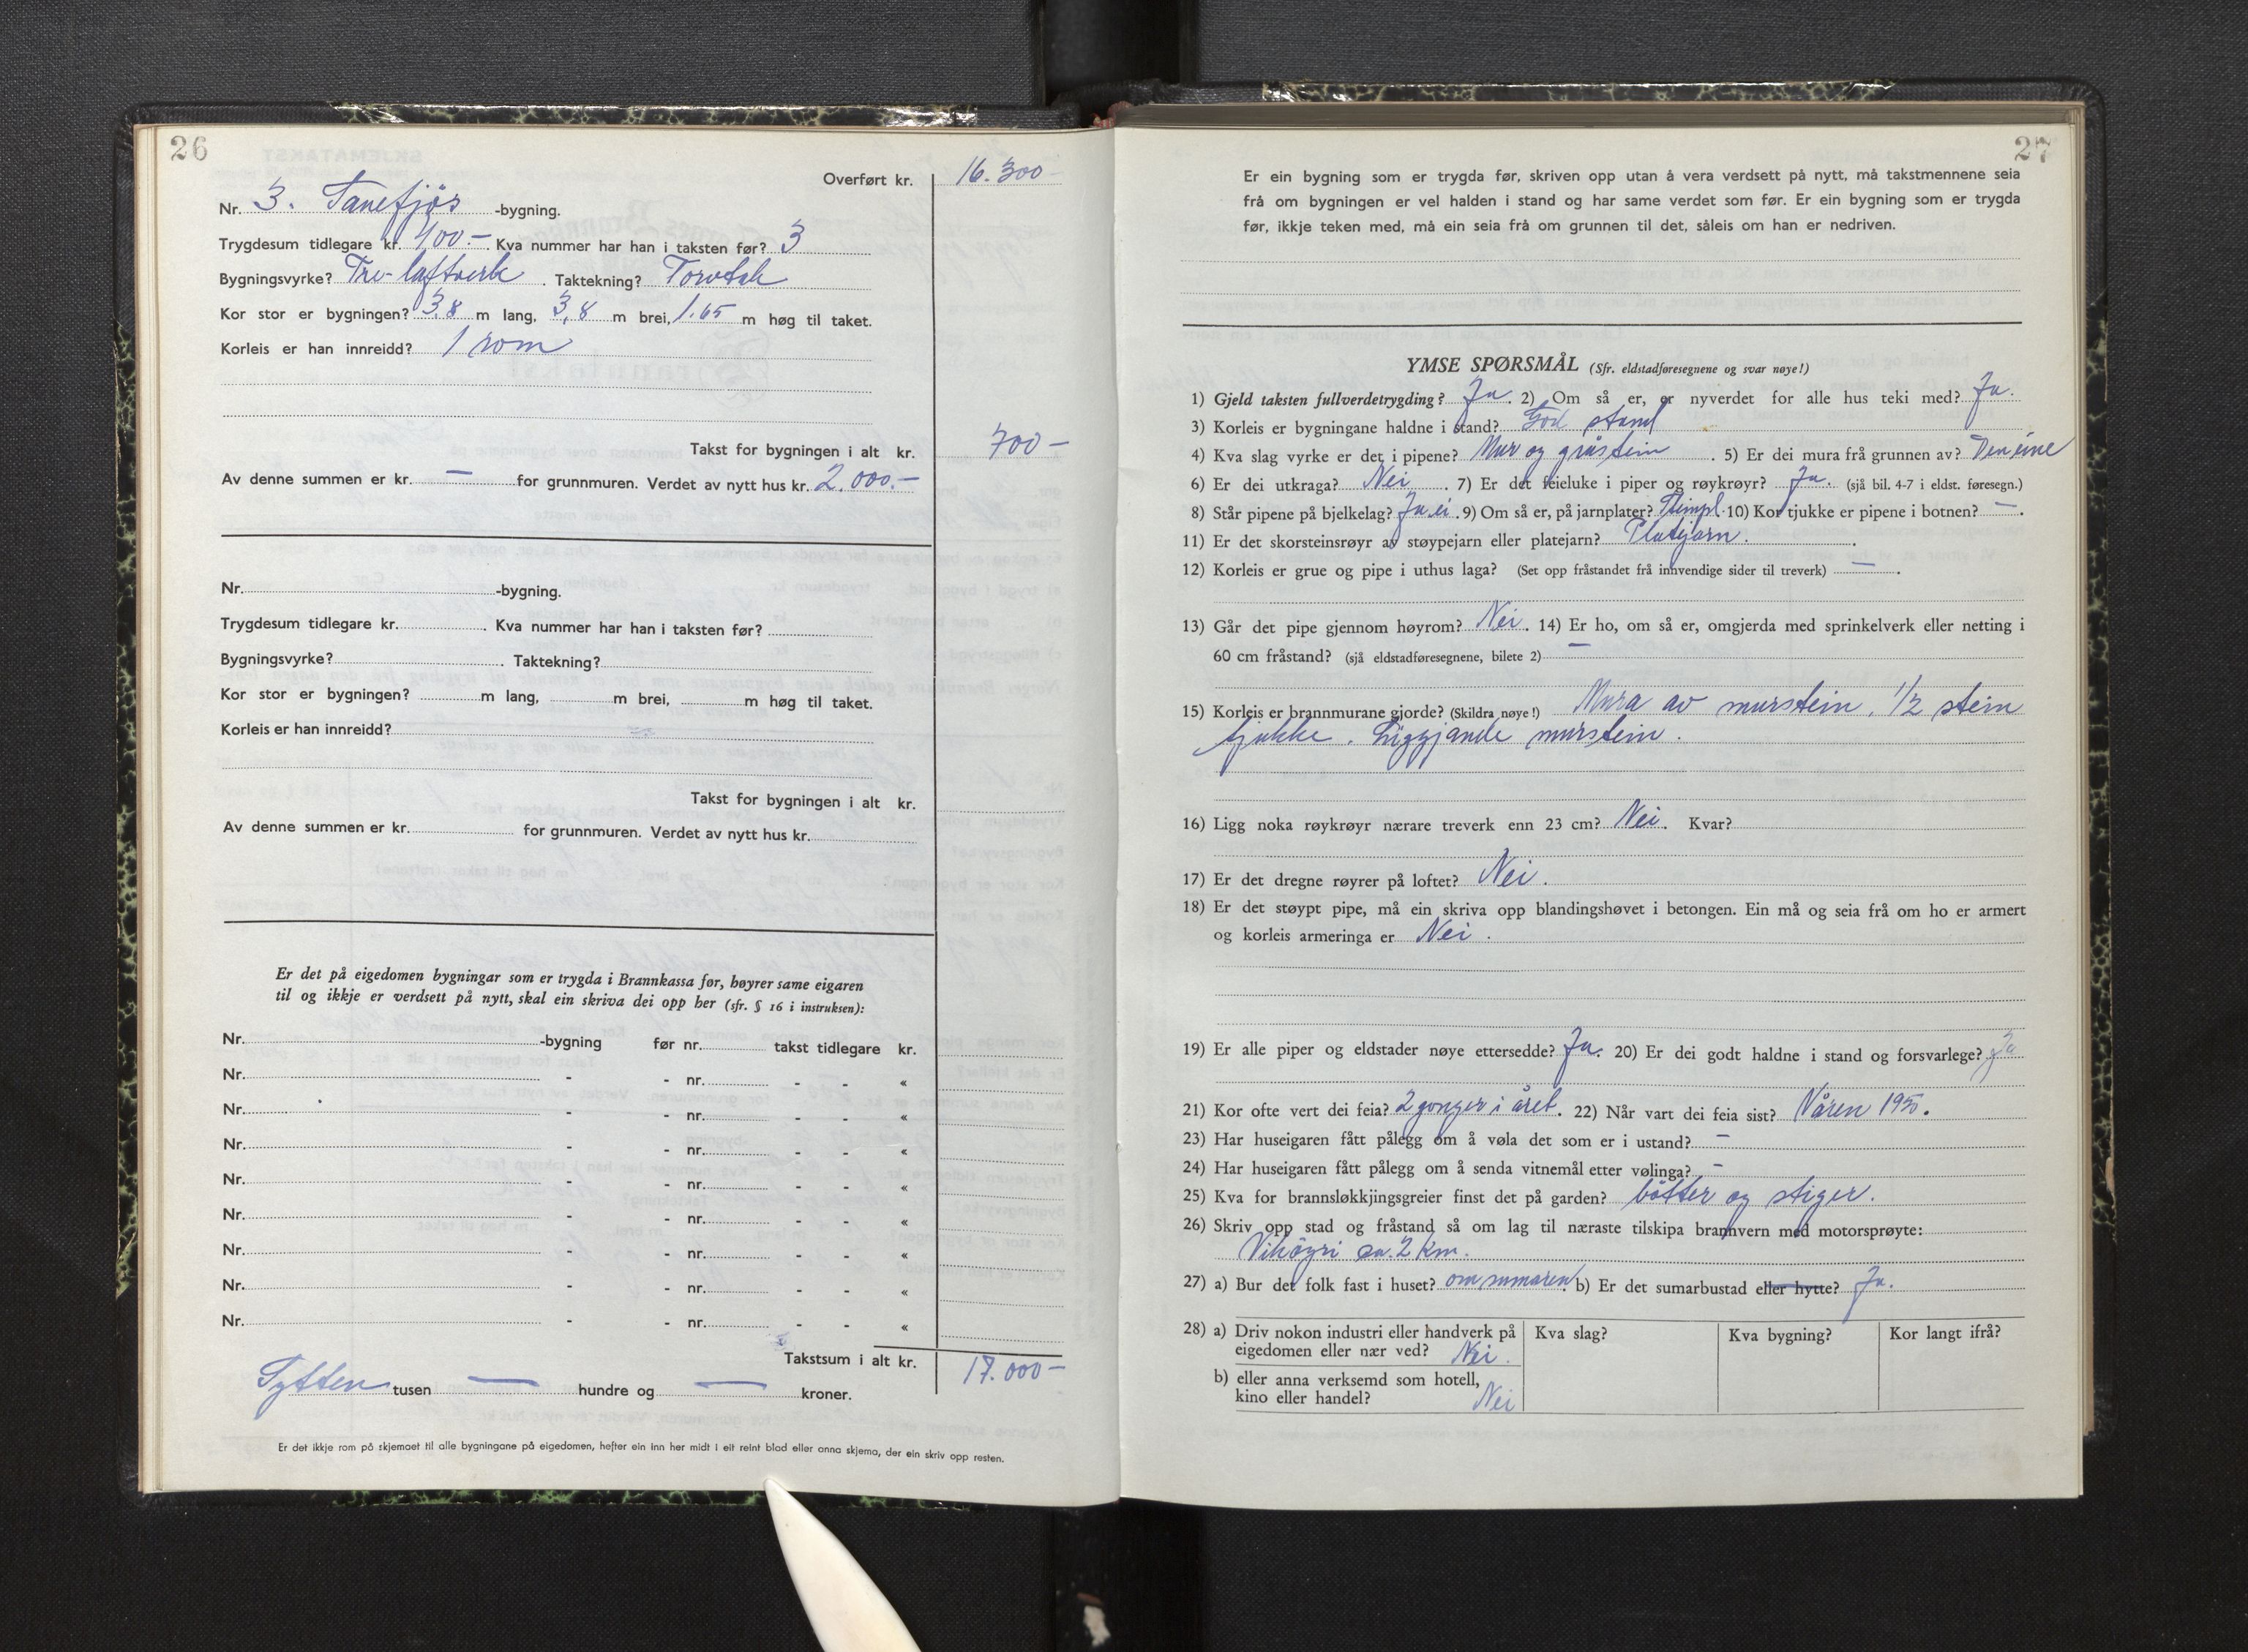 26
Overført kr. 16.300-
Nr. 3. Sauefjös -bygning.
Trygdesum tidlegare kr. 400.- Kva nummer har han i taksten før? 3
Bygningsvyrke? Tre-laftverk. Taktekning? Torvtak
Kor stor er bygningen? 3,8 m lang, 3,8 m brei, 1.65 m høg til taket.
Korleis er han innreidd? 1 rom
Takst for bygningen i alt kr. 700-
Av denne summen er kr. — for grunnmuren. Verdet av nytt hus kr. 2.000.-
Nr. -bygning.
Trygdesum tidlegare kr. . Kva nummer har han i taksten før?
Bygningsvyrke? . Taktekning?
Kor stor er bygningen? m lang, m brei, m høg til taket.
Korleis er han innreidd?
Takst for bygningen i alt kr.
Av denne summen er kr. for grunnmuren. Verdet av nytt hus kr.
Er det på eigedomen bygningar som er trygda i Brannkassa før, høyrer same eigaren
til og ikkje er verdsett på nytt, skal ein skriva dei opp her (sfr. § 16 i instruksen):
Nr. -bygning før nr. takst tidlegare kr.
Nr. - - nr. - - «
Nr. - - nr. - - «
Nr. - - nr. - - «
Nr. - - nr. - - «
Nr. - - nr. - - «
Nr. - - nr. - - «
Nr. - - nr. - - «
Nr. - - nr. - - «
Takstsum i alt kr. 17.000-
Sytten tusen — hundre og — kroner.
Er det ikkje rom på skjemaet til alle bygningane på eigedomen, hefter ein inn her midt i eit reint blad eller anna skjema, der ein skriv opp resten.
27
Er ein bygning som er trygda før, skriven opp utan å vera verdsett på nytt, må takstmennene seia
frå om bygningen er vel halden i stand og har same verdet som før. Er ein bygning som er trygda
før, ikkje teken med, må ein seia frå om grunnen til det, såleis om han er nedriven.
YMSE SPØRSMÅL (Sfr. eldstadføresegnene og svar nøye!)
1) Gjeld taksten fullverdetrygding? Ja. 2) Om så er, er nyverdet for alle hus teki med? Ja.
3) Korleis er bygningane haldne i stand? God stand
4) Kva slag vyrke er det i pipene? Mur og gråstein. 5) Er dei mura frå grunnen av? Den eine
6) Er dei utkraga? Nei. 7) Er det feieluke i piper og røykrøyr? Ja. (sjå bil. 4-7 i eldst. føresegn.)
8) Står pipene på bjelkelag? Ja ei. 9) Om så er, på jarnplater? 10) Kor tjukke er pipene i botnen? —.
11) Er det skorsteinsrøyr av støypejarn eller platejarn? Platejarn.
12) Korleis er grue og pipe i uthus laga? (Set opp fråstandet frå innvendige sider til treverk) —.
13) Går det pipe gjennom høyrom? Nei. 14) Er ho, om så er, omgjerda med sprinkelverk eller netting i
60 cm fråstand? (sjå eldstadføresegnene, bilete 2) —
15) Korleis er brannmurane gjorde? (Skildra nøye!) Mura av murstein, 1/2 stein
tjukke. Liggjande murstein.
16) Ligg noka røykrøyr nærare treverk enn 23 cm? Nei. Kvar?
17) Er det dregne røyrer på loftet? Nei.
18) Er det støypt pipe, må ein skriva opp blandingshøvet i betongen. Ein må og seia frå om ho er armert
og korleis armeringa er Nei.
19) Er alle piper og eldstader nøye ettersedde? Ja. 20) Er dei godt haldne i stand og forsvarlege? Ja
21) Kor ofte vert dei feia? 2 gonger i året. 22) Når vart dei feia sist? Våren 1950.
23) Har huseigaren fått pålegg om å vøla det som er i ustand? —
24) Har huseigaren fått pålegg om å senda vitnemål etter vølinga? —
25) Kva for brannsløkkjingsgreier finst det på garden? bötter og stiger.
26) Skriv opp stad og fråstand så om lag til næraste tilskipa brannvern med motorsprøyte:
Vikøyri ca. 2 km.
27) a) Bur det folk fast i huset? om sumaren. b) Er det sumarbustad eller hytte? Ja.
28) a) Driv nokon industri eller handverk på eigedomen eller nær ved? Nei. Kva slag? Kva bygning? Kor langt ifrå?
b) eller anna verksemd som hotell, kino eller handel? Nei